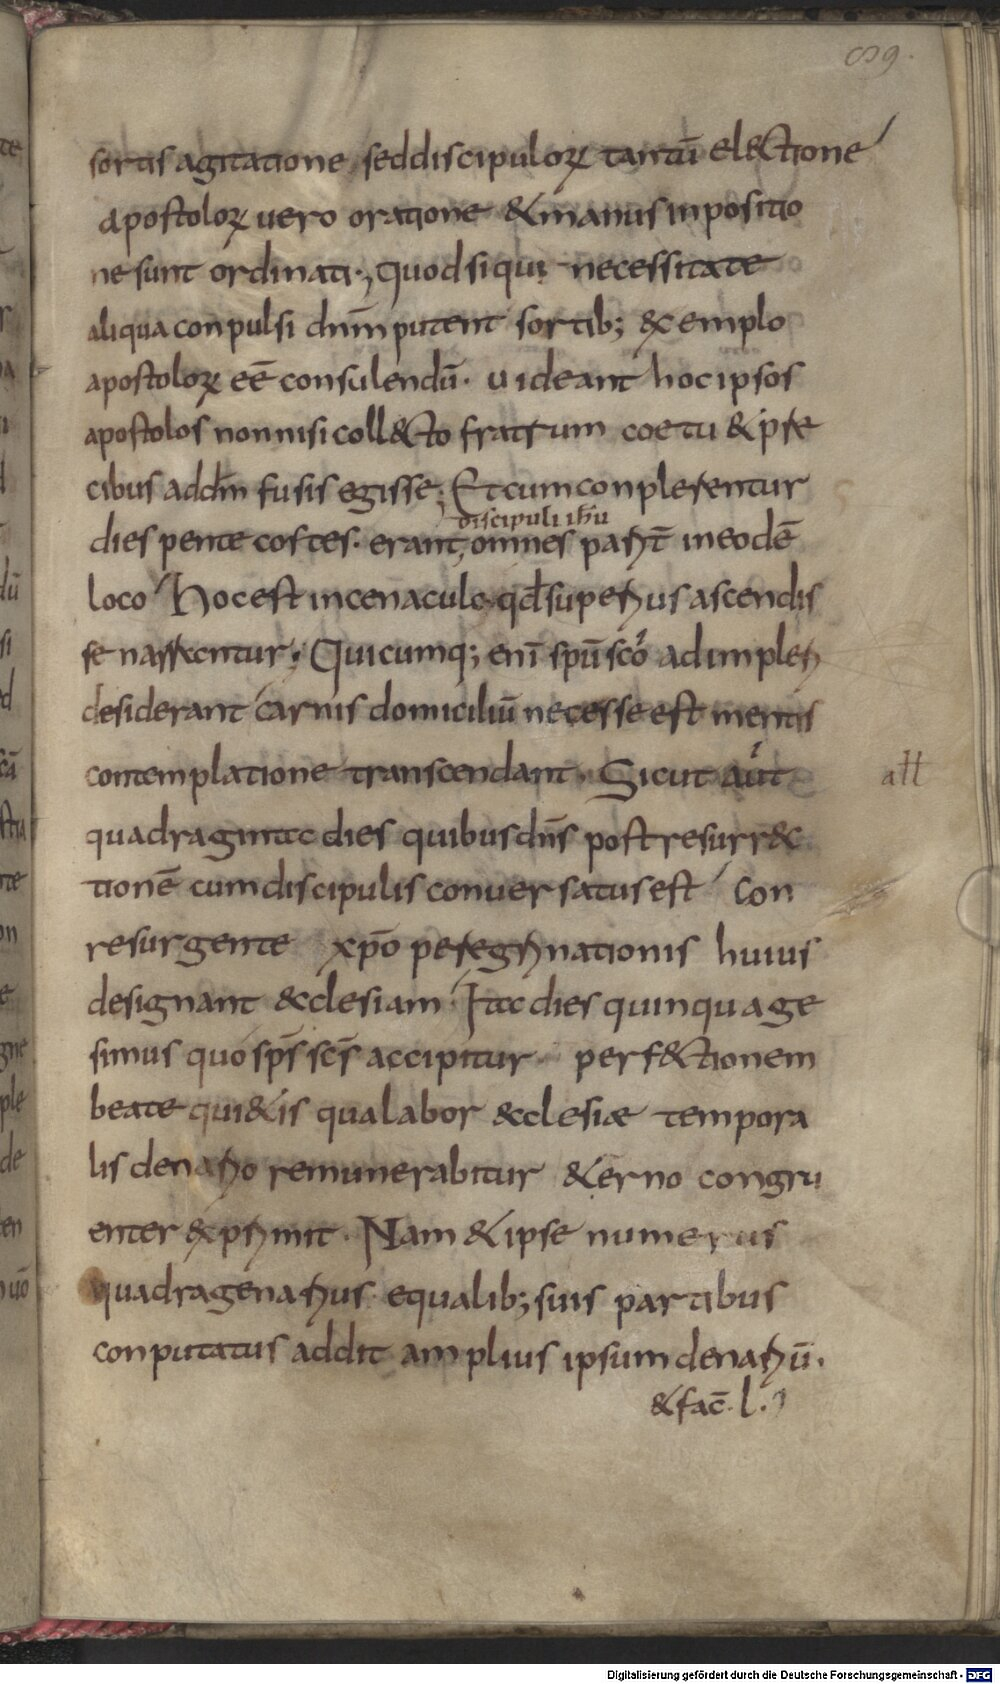 89.
sortis agitatione, sed discipuloꝝ tantū el&tione
apostoloꝝ uero oratione & manus inpositio
ne sunt ordinati., quod si qui necessitate
aliqua conpulsi dn̄m putent sortib; &emplo
apostoloꝝ eē consulendū. uideant hoc ipsos
apostolos non nisi coll&to fratrum coetu & pre
cibus ad dm̄ fusis egisse; Et cum conplerentur
discipuli ihu
dies pentecostes. erant, omnes parit̄ in eodē
loco Hoc est in cenaculo qđ superius ascendis
se narrantur; Quicumq; enī spū sc̄o adimpleri
desiderant carnis domiciliū necesse est mentis
contemplatione transcendant. Sicut aut̄
att̄
quadraginta dies quibus dn̄s post resurr&
tionē cum discipulis conuersatus est Con
resurgente xp̄o peregrinationis huius
designant &clesiam. Ita dies quinquage
simus quo sp̄s sc̄s accipitur perf&tionem
beate qui&is qua labor &clesiæ tempora
lis denario remunerabitur &erno congru
enter &primit. Nam & ipse numerus
quadragenarius equalib; suis partibus
conputatus addit amplius ipsum denariū.
& fac̄. l.
Digitalisierung gefördert durch die Deutsche Forschungsgemeinschaft - DFG